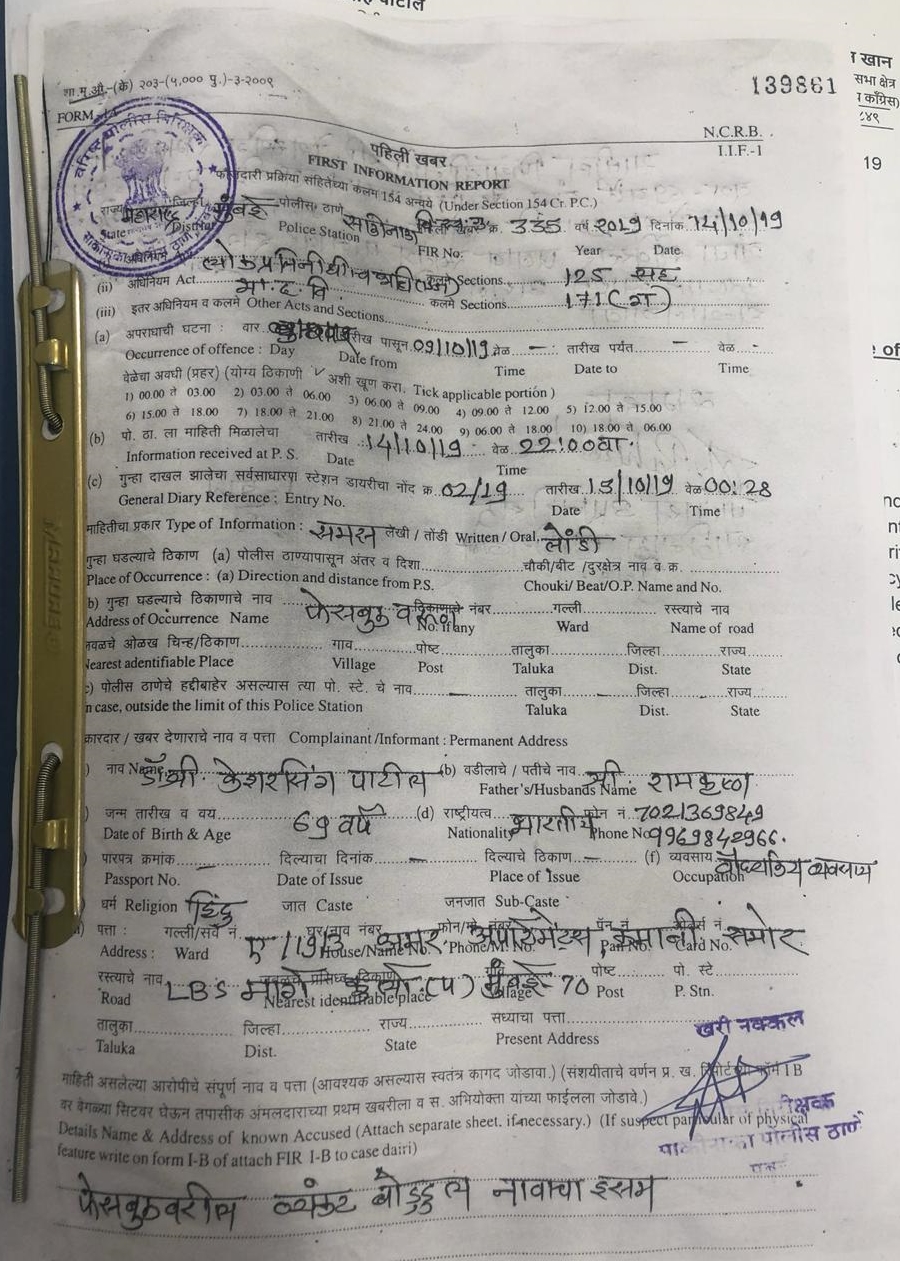 पाटील
शा.मु.औ.-(के) २०३-(५,००० पु.)-३-२००९
139861
FORM
N.C.R.B.
I.I.F.-1
पहिली खबर
FIRST INFORMATION REPORT
फौजदारी प्रक्रिया संहितेच्या कलम 154 अन्वये (Under Section 154 Cr. P.C.)
वरिष्ठ पोलीस निरिक्षक
राज्य महाराष्ट्र जिल्हा मुंबई पोलीस ठाणे 335 वर्ष 2019 दिनांक 14/10/19
State District Police Station FIR No. Year Date
(ii) अधिनियम Act लोकप्रतिनीधीत्व कलमे Sections 125 सह
(iii) इतर अधिनियम व कलमे Other Acts and Sections भा.द.वि. कलमे Sections 171(ग)
(a) अपराधाची घटना : वार तारीख पासून 09/10/19 वेळ — तारीख पर्यत — वेळ -
Occurrence of offence : Day Date from Time Date to Time
वेळेचा अवधी (प्रहर) (योग्य ठिकाणी √ अशी खूण करा. Tick applicable portion )
1) 00.00 ते 03.00 2) 03.00 ते 06.00 3) 06.00 ते 09.00 4) 09.00 ते 12.00 5) 12.00 ते 15.00
6) 15.00 ते 18.00 7) 18.00 ते 21.00 8) 21.00 ते 24.00 9) 06.00 ते 18.00 10) 18.00 ते 06.00
(b) पो. ठा. ला माहिती मिळालेचा तारीख 14/10/19 वेळ 22:00 वा.
Information received at P. S. Date Time
(c) गुन्हा दाखल झालेचा सर्वसाधारण स्टेशन डायरीचा नोंद क्र. 02/19 तारीख 15/10/19 वेळ 00:28
General Diary Reference : Entry No. Date Time
माहितीचा प्रकार Type of Information : समक्ष लेखी / तोंडी Written / Oral. तोंडी
गुन्हा घडल्याचे ठिकाण (a) पोलीस ठाण्यापासून अंतर व दिशा चौकी/बीट /दुरक्षेत्र नाव व क्र.
Place of Occurrence : (a) Direction and distance from P.S. Chouki/ Beat/O.P. Name and No.
b) गुन्हा घडल्याचे ठिकाणाचे नाव फेसबुक वरून ठिकाणाचे नंबर गल्ली रस्त्याचे नाव
Address of Occurrence Name No. if any Ward Name of road
जवळचे ओळख चिन्ह/ठिकाण गाव पोष्ट तालुका जिल्हा राज्य
Nearest adentifiable Place Village Post Taluka Dist. State
c) पोलीस ठाणेचे हद्दीबाहेर असल्यास त्या पो. स्टे. चे नाव — तालुका — जिल्हा राज्य
n case, outside the limit of this Police Station Taluka Dist. State
कारदार / खबर देणाराचे नाव व पत्ता Complainant /Informant : Permanent Address
) नाव Name डॉ.श्री. केशरसिंग पाटील (b) वडीलाचे / पतीचे नाव श्री रामकृष्ण
Father's/Husbands Name
) जन्म तारीख व वय 69 वर्षे (d) राष्ट्रीयत्व भारतीय फोन नं. 7021369849
Date of Birth & Age Nationality Phone No 9969842966.
) पारपत्र क्रमांक — दिल्याचा दिनांक — दिल्याचे ठिकाण — (f) व्यवसाय वैद्यकिय व्यवसाय
Passport No. Date of Issue Place of Issue Occupation
) धर्म Religion हिंदु जात Caste जनजात Sub-Caste
पत्ता : गल्ली/सर्वे नं. घर नाव नंबर फोन/मो. नंबर पॅन नं.
Address : Ward ए/19/3 House/Name No. अमर Phone/Mo. No. अपार्टमेंट्स, कमानी Pan No. Card No. समोर
रस्त्याचे नाव जवळचे प्रसिध्द ठिकाण पोष्ट पो. स्टे
Road LBS मार्ग कुर्ला (प) मुंबई-70 Nearest identifiable place Village Post P. Stn.
तालुका जिल्हा राज्य सध्याचा पत्ता
Taluka Dist. State Present Address
खरी नक्कल
माहिती असलेल्या आरोपीचे संपूर्ण नाव व पत्ता (आवश्यक असल्यास स्वतंत्र कागद जोडावा.) (संशयीताचे वर्णन प्र. ख. रिपोर्ट फॉर्म I B
वर वेगळ्या सिटवर घेऊन तपासीक अंमलदाराच्या प्रथम खबरीला व स. अभियोक्ता यांच्या फाईलला जोडावे.)
Details Name & Address of known Accused (Attach separate sheet. if necessary.) (If suspect particular of physical
feature write on form I-B of attach FIR 1-B to case dairi)
पोलीस ठाणे
फेसबुकवरील व्यंकट बोड्डुल नावाचा इसम
खान
सभा क्षेत्र
काँग्रेस)
19
of